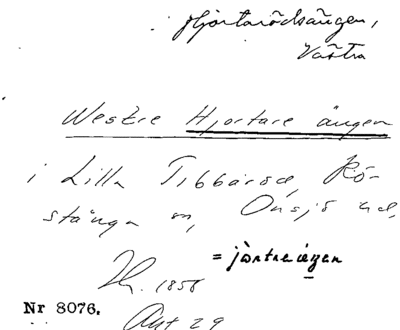 Hjortarödsängen,
Västra
Westre Hjortare ängen
i Lilla Tibbaröd, Rö-
stånga sn, Onsjö hd,
= jörtreängen
1858
Nr 8076.
Akt 29